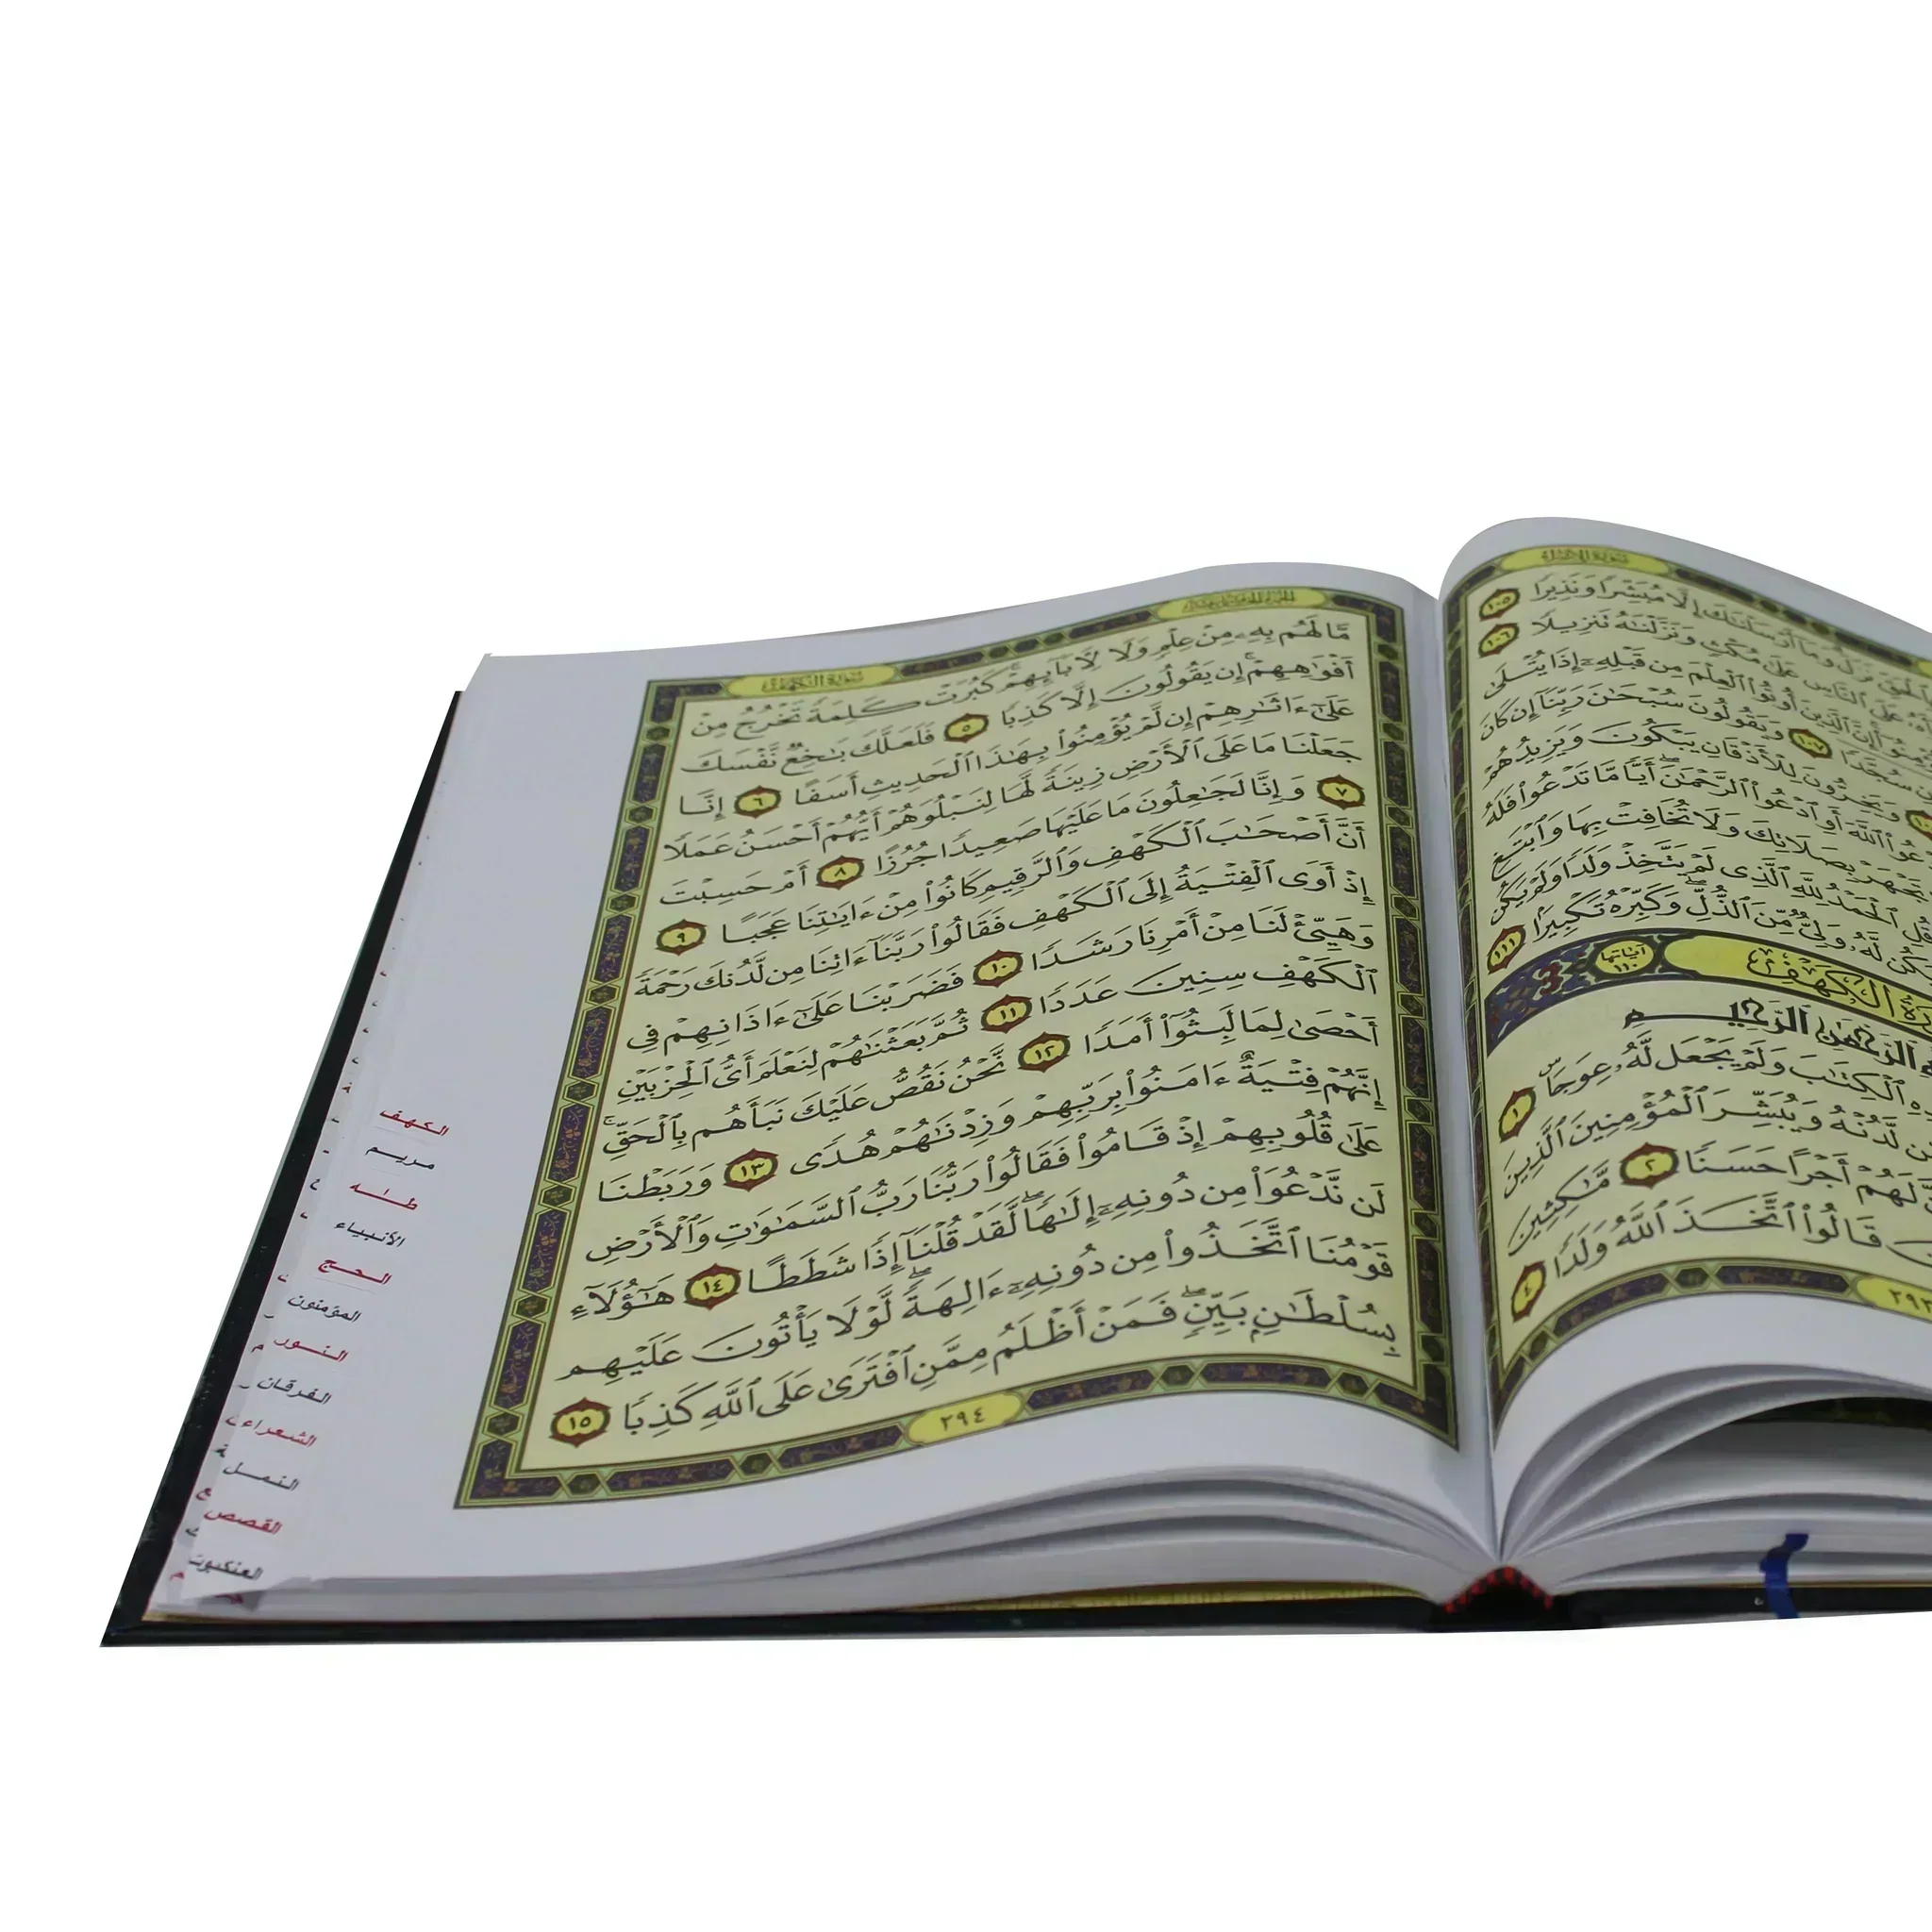 سورة الإسراء
نَزَلَ وَمَآ أَرْسَلْنَٰكَ إِلَّا مُبَشِّرًا وَنَذِيرًا ١٠٥
عَلَى ٱلنَّاسِ عَلَىٰ مُكْثٍ وَنَزَّلْنَٰهُ تَنزِيلًا ١٠٦
إِنَّ ٱلَّذِينَ أُوتُوا۟ ٱلْعِلْمَ مِن قَبْلِهِۦٓ إِذَا يُتْلَىٰ
سُجَّدًا ١٠٧ وَيَقُولُونَ سُبْحَٰنَ رَبِّنَآ إِن كَانَ
وَيَخِرُّونَ لِلْأَذْقَانِ يَبْكُونَ وَيَزِيدُهُمْ
ٱللَّهَ أَوِ ٱدْعُوا۟ ٱلرَّحْمَٰنَ ۖ أَيًّا مَّا تَدْعُوا۟ فَلَهُ
بِصَلَاتِكَ وَلَا تُخَافِتْ بِهَا وَٱبْتَغِ
ٱلْحَمْدُ لِلَّهِ ٱلَّذِى لَمْ يَتَّخِذْ وَلَدًا وَلَمْ يَكُن
لَّهُۥ وَلِىٌّ مِّنَ ٱلذُّلِّ ۖ وَكَبِّرْهُ تَكْبِيرًۢا ١١١
الكهف آياتها ١١٠
ٱلرَّحْمَٰنِ ٱلرَّحِيمِ
ٱلْكِتَٰبَ وَلَمْ يَجْعَل لَّهُۥ عِوَجَا ۜ ١
لَّدُنْهُ وَيُبَشِّرَ ٱلْمُؤْمِنِينَ ٱلَّذِينَ
لَهُمْ أَجْرًا حَسَنًا ٢ مَّٰكِثِينَ
قَالُوا۟ ٱتَّخَذَ ٱللَّهُ وَلَدًا ٤
٢٩٣
سورة الكهف
مَّا لَهُم بِهِۦ مِنْ عِلْمٍ وَلَا لِءَابَآئِهِمْ ۚ كَبُرَتْ كَلِمَةً تَخْرُجُ مِنْ
أَفْوَٰهِهِمْ ۚ إِن يَقُولُونَ إِلَّا كَذِبًا ٥ فَلَعَلَّكَ بَٰخِعٌ نَّفْسَكَ
عَلَىٰٓ ءَاثَٰرِهِمْ إِن لَّمْ يُؤْمِنُوا۟ بِهَٰذَا ٱلْحَدِيثِ أَسَفًا ٦ إِنَّا
جَعَلْنَا مَا عَلَى ٱلْأَرْضِ زِينَةً لَّهَا لِنَبْلُوَهُمْ أَيُّهُمْ أَحْسَنُ عَمَلًا
٧ وَإِنَّا لَجَٰعِلُونَ مَا عَلَيْهَا صَعِيدًا جُرُزًا ٨ أَمْ حَسِبْتَ
أَنَّ أَصْحَٰبَ ٱلْكَهْفِ وَٱلرَّقِيمِ كَانُوا۟ مِنْ ءَايَٰتِنَا عَجَبًا ٩
إِذْ أَوَى ٱلْفِتْيَةُ إِلَى ٱلْكَهْفِ فَقَالُوا۟ رَبَّنَآ ءَاتِنَا مِن لَّدُنكَ رَحْمَةً
وَهَيِّئْ لَنَا مِنْ أَمْرِنَا رَشَدًا ١٠ فَضَرَبْنَا عَلَىٰٓ ءَاذَانِهِمْ فِى
ٱلْكَهْفِ سِنِينَ عَدَدًا ١١ ثُمَّ بَعَثْنَٰهُمْ لِنَعْلَمَ أَىُّ ٱلْحِزْبَيْنِ
أَحْصَىٰ لِمَا لَبِثُوٓا۟ أَمَدًا ١٢ نَّحْنُ نَقُصُّ عَلَيْكَ نَبَأَهُم بِٱلْحَقِّ ۚ
إِنَّهُمْ فِتْيَةٌ ءَامَنُوا۟ بِرَبِّهِمْ وَزِدْنَٰهُمْ هُدًى ١٣ وَرَبَطْنَا
عَلَىٰ قُلُوبِهِمْ إِذْ قَامُوا۟ فَقَالُوا۟ رَبُّنَا رَبُّ ٱلسَّمَٰوَٰتِ وَٱلْأَرْضِ
لَن نَّدْعُوَا۟ مِن دُونِهِۦٓ إِلَٰهًا ۖ لَّقَدْ قُلْنَآ إِذًا شَطَطًا ١٤ هَٰٓؤُلَآءِ
قَوْمُنَا ٱتَّخَذُوا۟ مِن دُونِهِۦٓ ءَالِهَةً ۖ لَّوْلَا يَأْتُونَ عَلَيْهِم
بِسُلْطَٰنٍۭ بَيِّنٍ ۖ فَمَنْ أَظْلَمُ مِمَّنِ ٱفْتَرَىٰ عَلَى ٱللَّهِ كَذِبًا ١٥
٢٩٤
الكهف
مريم
طه
الأنبياء
الحج
المؤمنون
النور
الفرقان
الشعراء
النمل
القصص
العنكبوت